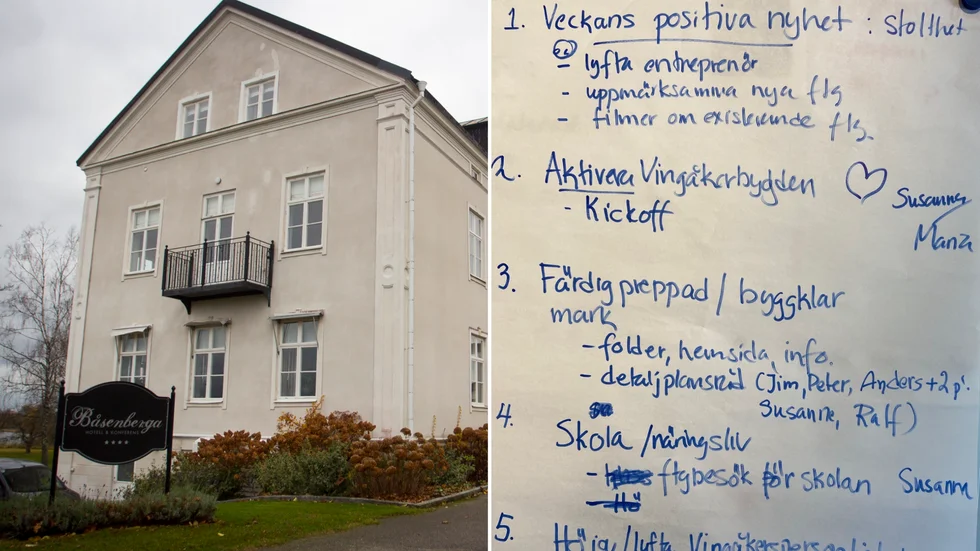 Båsenberga
HOTELL & KONFERENS
1. Veckans positiva nyhet : Stolthet
- lyfta entreprenör
- uppmärksamma nya ftg
- filmer om existerande ftg.
2. Aktivera Vingåkerbygden
- Kickoff
Susanne
Maria
3. Färdigpreppad / byggklar
mark
- folder, hemsida, info.
- detaljplansråd (Jim, Peter, Anders + 2 p.
Susanne, Ralf)
4.
Skola / näringsliv
- ftgbesök för skolan Susanne
5.
Höja / lyfta